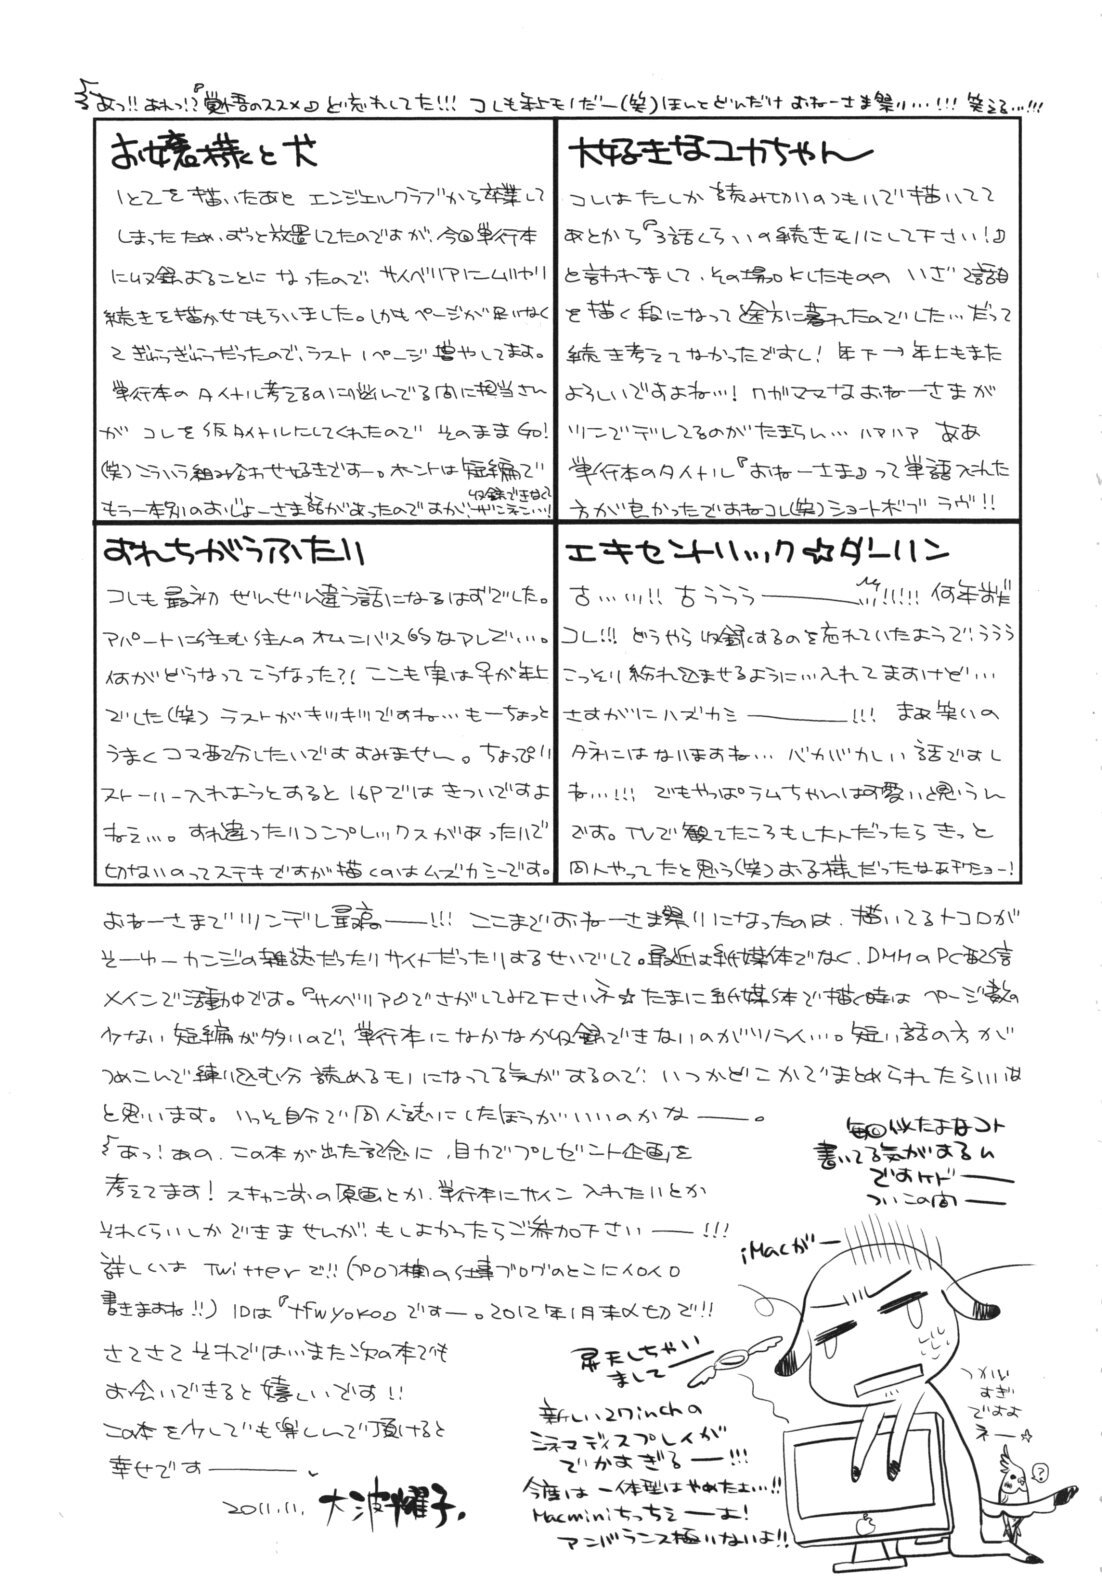 あっ!!あれっ!?『覚悟のススメ』ど忘れしてた!!!コレも年上モノだー(笑)ほんとどんだけおねーさま祭り…!!!笑える…!!!
お嬢様と犬
1とこを描いたあと エンジェルクラブから卒業して
しまったため、ずっと放置してたのですが、今回単行本
に収録することになったので、サイベリアにムリヤリ
続きを描かせてもらいました。しかもページが足りなく
てぎゅうぎゅうだったので、ラスト1ページ増やしてます。
単行本のタイトル考えるのに悩んでる間に担当さん
がコレを仮タイトルにしてくれたので そのままGO!
(笑)こういう組み合わせ好きですー。ホントは短編で
もう一本別のおじょーさま話があったのですが、収録できなくてザンネン…!
大好きなユカちゃん
コレはたしか読み切りのつもりで描いてて
あとから『3話くらいの続きモノにして下さい!』
と言われまして、その場OKしたものの いざ2話目
を描く段になって途方に暮れたのでした…だって
続き考えてなかったですし!年下→年上もまた
よろしいですよね…!ワガママなおねーさまが
ツンでデレしてるのがたまらん…ハァハァ ああ
単行本のタイトル『おねーさま』って単語入れた
方が良かったですねコレ(笑)ショートボブ ラヴ!!
すれちがうふたり
コレも最初ぜんぜん違う話になるはずでした。
アパートに住む住人のオムニバス的なアレで…。
何がどうなってこうなった?!ここも実は♀が年上
でした(笑)ラストがキツキツですね…もーちょっと
うまくコマ配分したいですすみません。ちょっぴり
ストーリー入れようとすると16Pではきついですよ
ねぇ…。すれ違ったりコンプレックスがあったりで
切ないのってステキですが描くのはムズカシーです。
エキセントリック☆ダーリン
古…ッ!!古ううう━━━ッ!!!!!何年前だ
コレ!!!どうやら収録するのを忘れていたようで、ううう
こっそり紛れ込ませるように…入れてますけど…
さすがにハズカシ━━━!!!まあ笑いの
タネにはなりますね…バカバカしい話ですし
ね…!!!でもやっぱラムちゃんは可愛いと思うん
です。TVで観てたころもし大人だったらきっと
同人やってたと思う(笑)お子様だったなあチキショー!
おねーさまでツンデレ最高━━!!!ここまでおねーさま祭りになったのは、描いてるトコロが
そーゆーカンジの雑誌だったりサイトだったりするせいでして。最近は紙媒体でなく、DMMのPC配信
メインで活動中です。『サイベリア』でさがしてみて下さいネ☆たまに紙媒体で描く時はページ数の
少ない短編が多いので、単行本になかなか収録できないのがツライ…。短い話の方が
つめこんで練り込む分読めるモノになってる気がするので、いつかどこかでまとめられたらいいな
と思います。いっそ自分で同人誌にしたほうがいいのかな━━。
あっ!あの、この本が出た記念に、自力でプレゼント企画を
考えてます!スキャン前の原画とか、単行本にサイン入れたりとか
それくらいしかできませんが、もしよかったらご参加下さい━━!!!
詳しくは Twitterで!!(プロフ欄の仕事ブログのとこにイロイロ
書きますね!!)IDは『tfwyoko』ですー。2012年1月末〆切で!!
さてさて それでは…また次の本でも
お会いできると嬉しいです!!
この本を少しでも楽しんで頂けると
幸せです━━━。
2011.11. 大波耀子.
毎回似たよなコト
書いてる気がするん
ですケドー
ついこの間ー
iMacがー
昇天しちゃい
まして
新しい27inchの
シネマディスプレイが
でかすぎるー!!!
今度は一体型はやめたよ…!!
Macminiちっちぇーよ!
アンバランス極りないよ!!
つかい
すぎ
ですよ
ネー☆
?